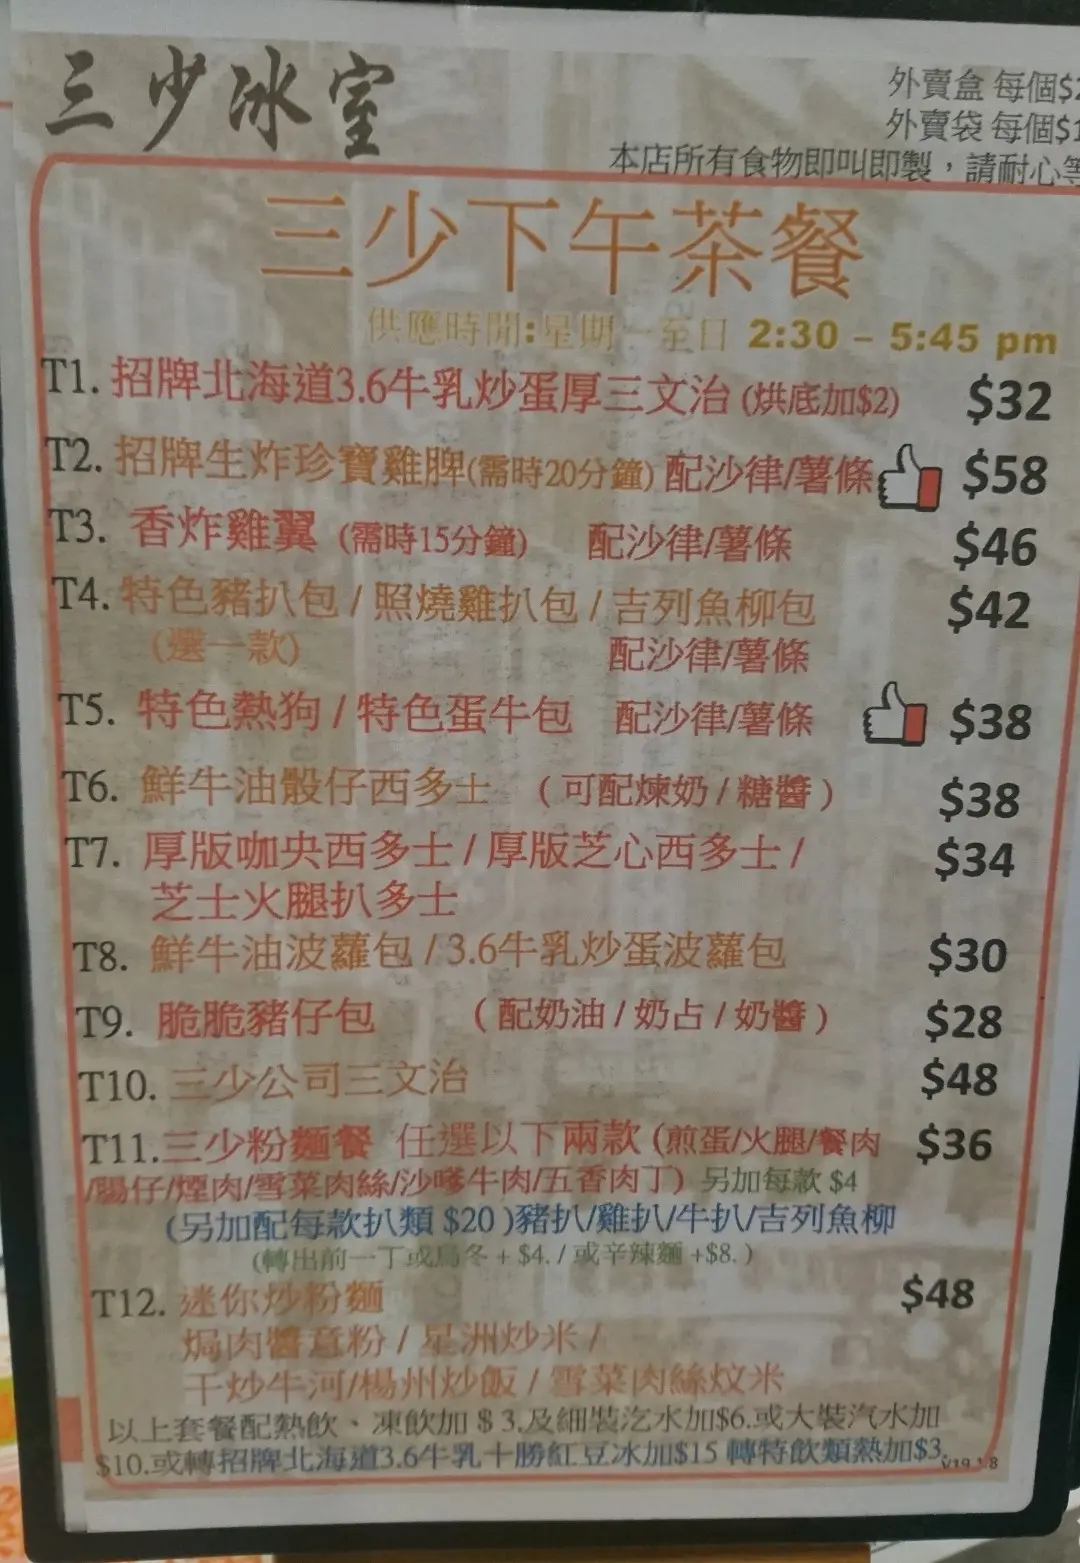 三少冰室
外賣盒 每個$2
外賣袋 每個$1
本店所有食物即叫即製，請耐心等
三少下午茶餐
供應時間:星期一至日 2:30 – 5:45 pm
T1. 招牌北海道3.6牛乳炒蛋厚三文治 (烘底加$2) $32
T2. 招牌生炸珍寶雞脾(需時20分鐘) 配沙律/薯條 $58
T3. 香炸雞翼 (需時15分鐘) 配沙律/薯條 $46
T4. 特色豬扒包 / 照燒雞扒包 / 吉列魚柳包 $42
(選一款) 配沙律/薯條
T5. 特色熱狗 / 特色蛋牛包 配沙律/薯條 $38
T6. 鮮牛油骰仔西多士 ( 可配煉奶 / 糖醬 ) $38
T7. 厚版咖央西多士 / 厚版芝心西多士 / $34
芝士火腿扒多士
T8. 鮮牛油波蘿包 / 3.6牛乳炒蛋波蘿包 $30
T9. 脆脆豬仔包 ( 配奶油 / 奶占 / 奶醬 ) $28
T10. 三少公司三文治 $48
T11.三少粉麵餐 任選以下兩款 (煎蛋/火腿/餐肉 $36
/腸仔/煙肉/雪菜肉絲/沙嗲牛肉/五香肉丁) 另加每款 $4
(另加配每款扒類 $20 )豬扒/雞扒/牛扒/吉列魚柳
(轉出前一丁或烏冬 + $4. / 或辛辣麵 +$8. )
T12. 迷你炒粉麵 $48
焗肉醬意粉 / 星洲炒米 /
干炒牛河/楊州炒飯 / 雪菜肉絲炆米
以上套餐配熱飲、凍飲加 $ 3.及細裝汽水加$6.或大裝汽水加
$10.或轉招牌北海道3.6牛乳十勝紅豆冰加$15 轉特飲類熱加$3.
V19.1.8